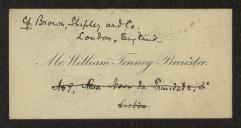 Cf Brown, Shipley and Co.
London, England
Mr. William Tenney Brewster.
Nova da Trindade,
Lisbôa